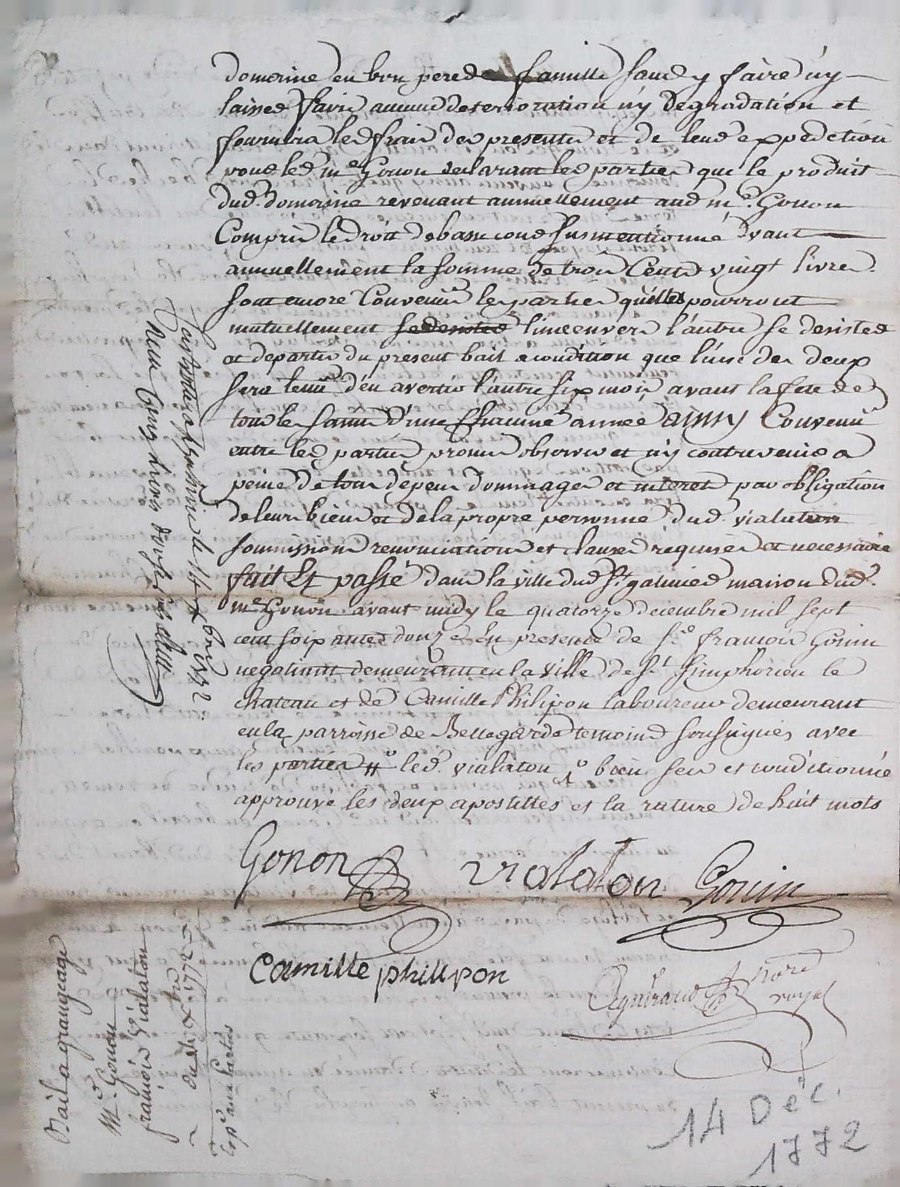 domeine en bon pere de famille sans y faire n'y
laisser faire aucune deterioration n'y degradation et
fournira les frais des presentes et de leur expedition
pour led. me. Gonon declarant les parties que le produit
dud. domeine revenant annuellement aud. me. Gonon
Compris le droit de basse cour susmentionné vaut
annuellement la somme de trois Cents vingt livres
sont encore Convenus les parties qu'elles pourront
mutuellement se desister l'une envers l'autre se desister
et departir du present bail a condition que l'une des deux
sera tenue d'en avertir l'autre six mois avant la fete de
tous les saints d'une chacune année ainsy Convenu
entre les parties promis observer et n'y contrevenir a
peine de tous depens dommages et interet par obligation
de leurs biens et de la propre personne dud. vialaton
soumissions renonciations et clauses requises et necessaires
fait Et passé dans la ville dud. St. galmier maison dud.
me. Gonon avant midy le quatorze decembre mil sept
cent soixante douze En presence de sr. francois Gonin
negotiant demeurant en la ville de St. simphorien le
chateau et de Camille Philipon laboureur demeurant
en la parroisse de Bellegarde temoins soussignés avec
les parties led. vialaton bien seu et conditionné
approuve les deux apostilles et la rature de huit mots
Gonon vialaton Gonin
Camille phillpon
nore royal
St galmier le 1772
livres
Bail a grangeage
Mr. Gonon
a
francois Vialaton
du 14 Xbre 1772
Exp. aux parties
14 Déc.
1772